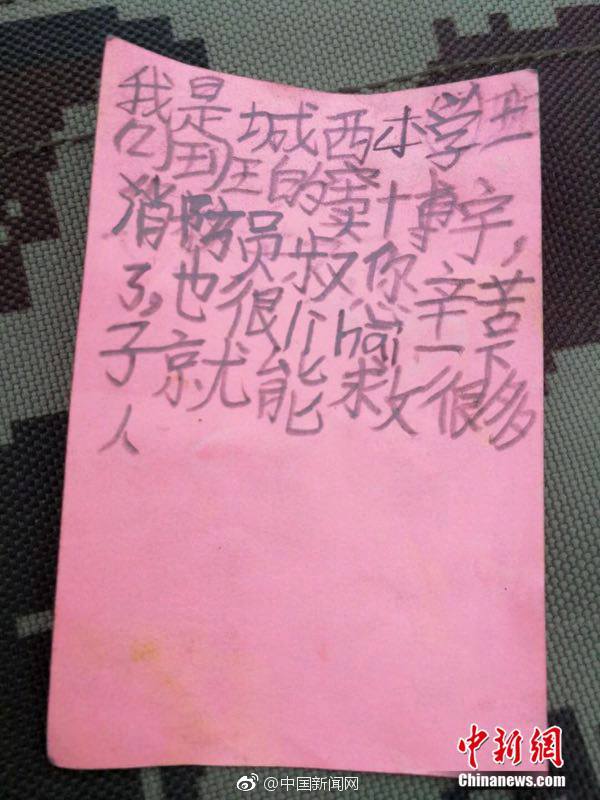 我是城西小学二
(1)班的窦博宇
消防员叔叔你辛苦
了,也很lì hài一下
子就能救很多
人
中新网
Chinanews.com
@中国新闻网